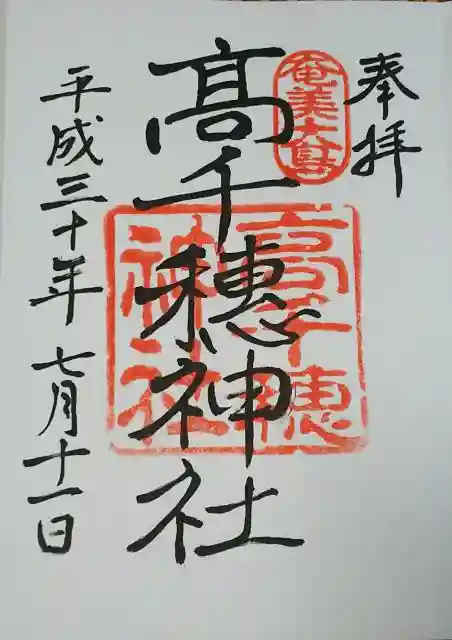 奉拝
奄美大島
髙千穗神社
高千穂
神社
平成三十年七月十一日